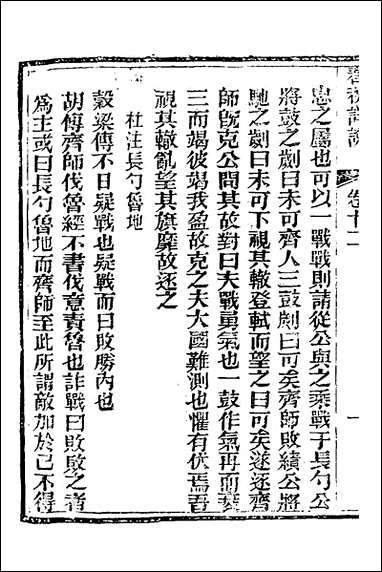 春秋詳說 卷十二 一
忠之屬也可以一戰戰則請從公與之乘戰于長勺公
將鼓之劌曰未可齊人三鼓劌曰可矣齊師敗績公將
馳之劌曰未可下視其轍登軾而望之曰可矣遂逐齊
師旣克公問其故對曰夫戰勇氣也一鼓作氣再而衰
三而竭彼竭我盈故克之夫大國難測也懼有伏焉吾
視其轍亂望其旗靡故逐之
杜注長勺魯地
穀梁傳不日疑戰也疑戰而曰敗勝內也
胡傳齊師伐魯經不書伐意責魯也詐戰曰敗敗之者
爲主或曰長勺魯地而齊師至此所謂敵加於已不得